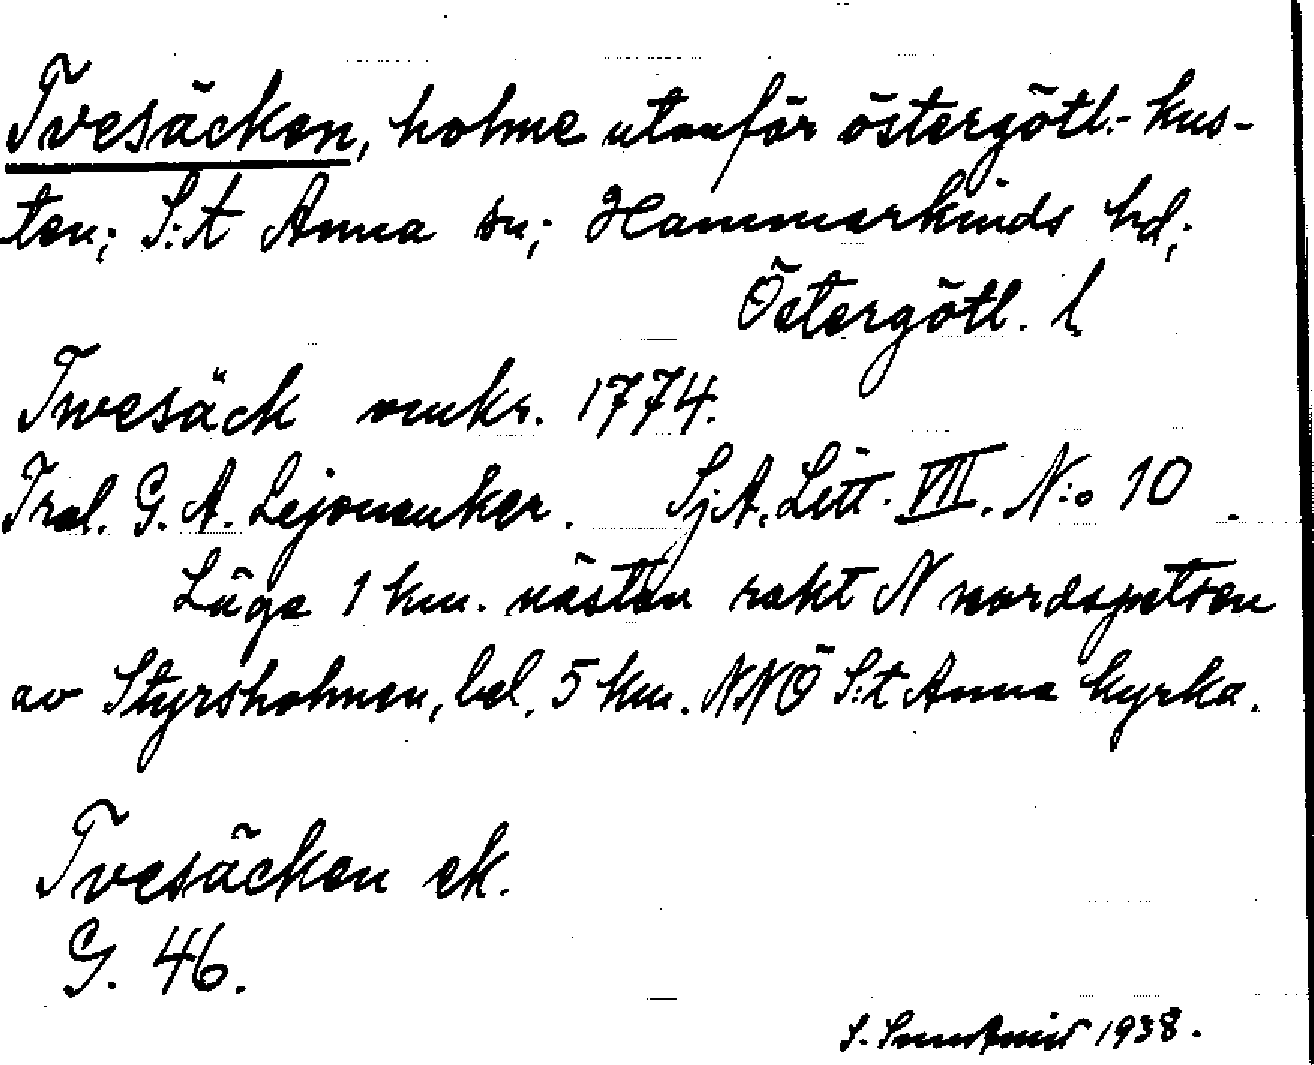 Tvesäcken, holme utanför östergötl.- kus-
ten; S:t Anna sn; Hammarkinds hd;
Östergötl. l
Twesäck omkr. 1774.
Tral. G. A. Lejonanker. Sj.A. Litt. VII. N:o 10.
Läge 1 km. nästan rakt N nordspetsen
av Styrsholmen, bel. 5 km. NNÖ S:t Anna kyrka.
Tvesäcken ek.
G. 46.
S. 1938.